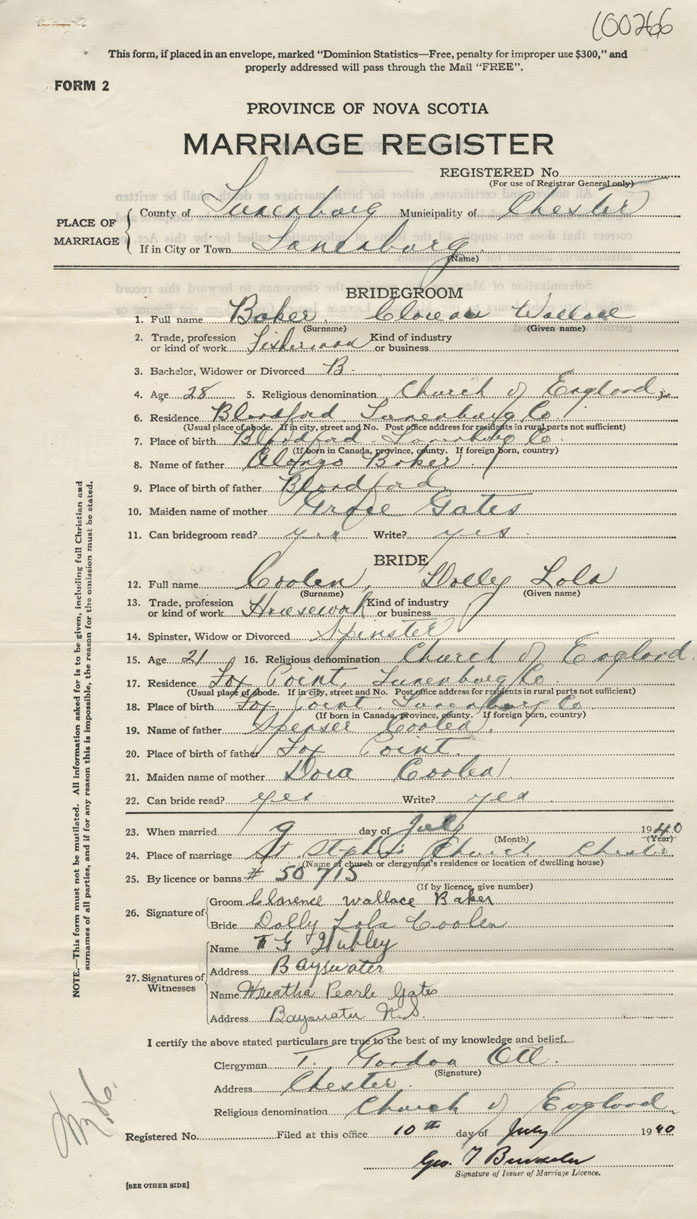 100266
This form, if placed in an envelope, marked "Dominion Statistics—Free, penalty for improper use $300," and
properly addressed will pass through the Mail "FREE".
FORM 2
PROVINCE OF NOVA SCOTIA
MARRIAGE REGISTER
REGISTERED No.
(For use of Registrar General only)
PLACE OF MARRIAGE
County of Lunenburg Municipality of Chester
If in City or Town Lunenburg
(Name)
BRIDEGROOM
1. Full name Baker Wallace
(Surname) (Given name)
2. Trade, profession or kind of work Fisherman Kind of industry or business
3. Bachelor, Widower or Divorced B.
4. Age 28 5. Religious denomination Church of England
6. Residence Blandford Lunenburg Co.
(Usual place of abode. If in city, street and No. Post office address for residents in rural parts not sufficient)
7. Place of birth Blandford Lunenburg Co.
(If born in Canada, province, county. If foreign born, country)
8. Name of father Alonzo Baker
9. Place of birth of father Blandford
10. Maiden name of mother Grace Gates
11. Can bridegroom read? yes Write? yes
BRIDE
12. Full name Coolen, Dolly Lola
(Surname) (Given name)
13. Trade, profession or kind of work Housework Kind of industry or business
14. Spinster, Widow or Divorced Spinster
15. Age 21 16. Religious denomination Church of England
17. Residence Fox Point, Lunenburg Co
(Usual place of abode. If in city, street and No. Post office address for residents in rural parts not sufficient)
18. Place of birth Fox Point Lunenburg Co
(If born in Canada, province, county. If foreign born, country)
19. Name of father Spenser Coolen
20. Place of birth of father Fox Point
21. Maiden name of mother Dora Coolen
22. Can bride read? yes Write? yes
23. When married 9 day of July 1940
(Month) (Year)
24. Place of marriage St Stephs Church Chester
(Name of church or clergyman's residence or location of dwelling house)
25. By licence or banns # 50715
(If by licence, give number)
26. Signature of
Groom Clarence Wallace Baker
Bride Dolly Lola Coolen
27. Signatures of Witnesses
Name Hubley
Address Bayswater
Name Hreatha Pearle Gates
Address Bayswater N.S.
I certify the above stated particulars are true to the best of my knowledge and belief.
Clergyman T. Gordon Ott
(Signature)
Address Chester
Religious denomination Church of England
Registered No. Filed at this office 10th day of July 1940
Geo. T
Signature of Issuer of Marriage Licence.
[SEE OTHER SIDE]
NOTE.—This form must not be mutilated. All information asked for is to be given, including full Christian and
surnames of all parties, and if for any reason this is impossible, the reason for the omission must be stated.